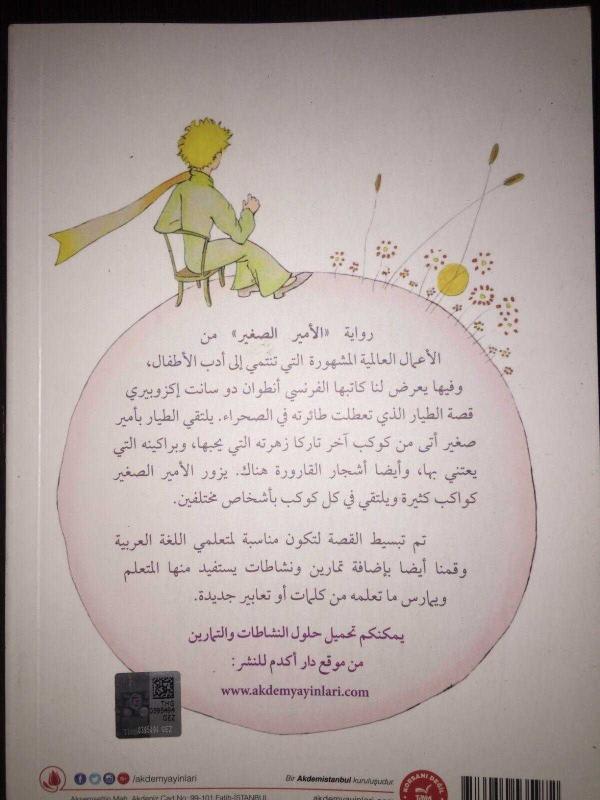 رواية «الأمير الصغير» من
الأعمال العالمية المشهورة التي تنتمي إلى أدب الأطفال،
وفيها يعرض لنا كاتبها الفرنسي أنطوان دو سانت إكزوبيري
قصة الطيار الذي تعطلت طائرته في الصحراء. يلتقي الطيار بأمير
صغير أتى من كوكب آخر تاركا زهرته التي يحبها، وبراكينه التي
يعتني بها، وأيضا أشجار القارورة هناك. يزور الأمير الصغير
كواكب كثيرة ويلتقي في كل كوكب بأشخاص مختلفين.
تم تبسيط القصة لتكون مناسبة لمتعلمي اللغة العربية
وقمنا أيضا بإضافة تمارين ونشاطات يستفيد منها المتعلم
ويمارس ما تعلمه من كلمات أو تعابير جديدة.
يمكنكم تحميل حلول النشاطات والتمارين
من موقع دار أكدم للنشر:
www.akdemyayinlari.com
/akdemyayinlari
Bir Akdemistanbul kuruluşudur.
KORSANI DEĞİL